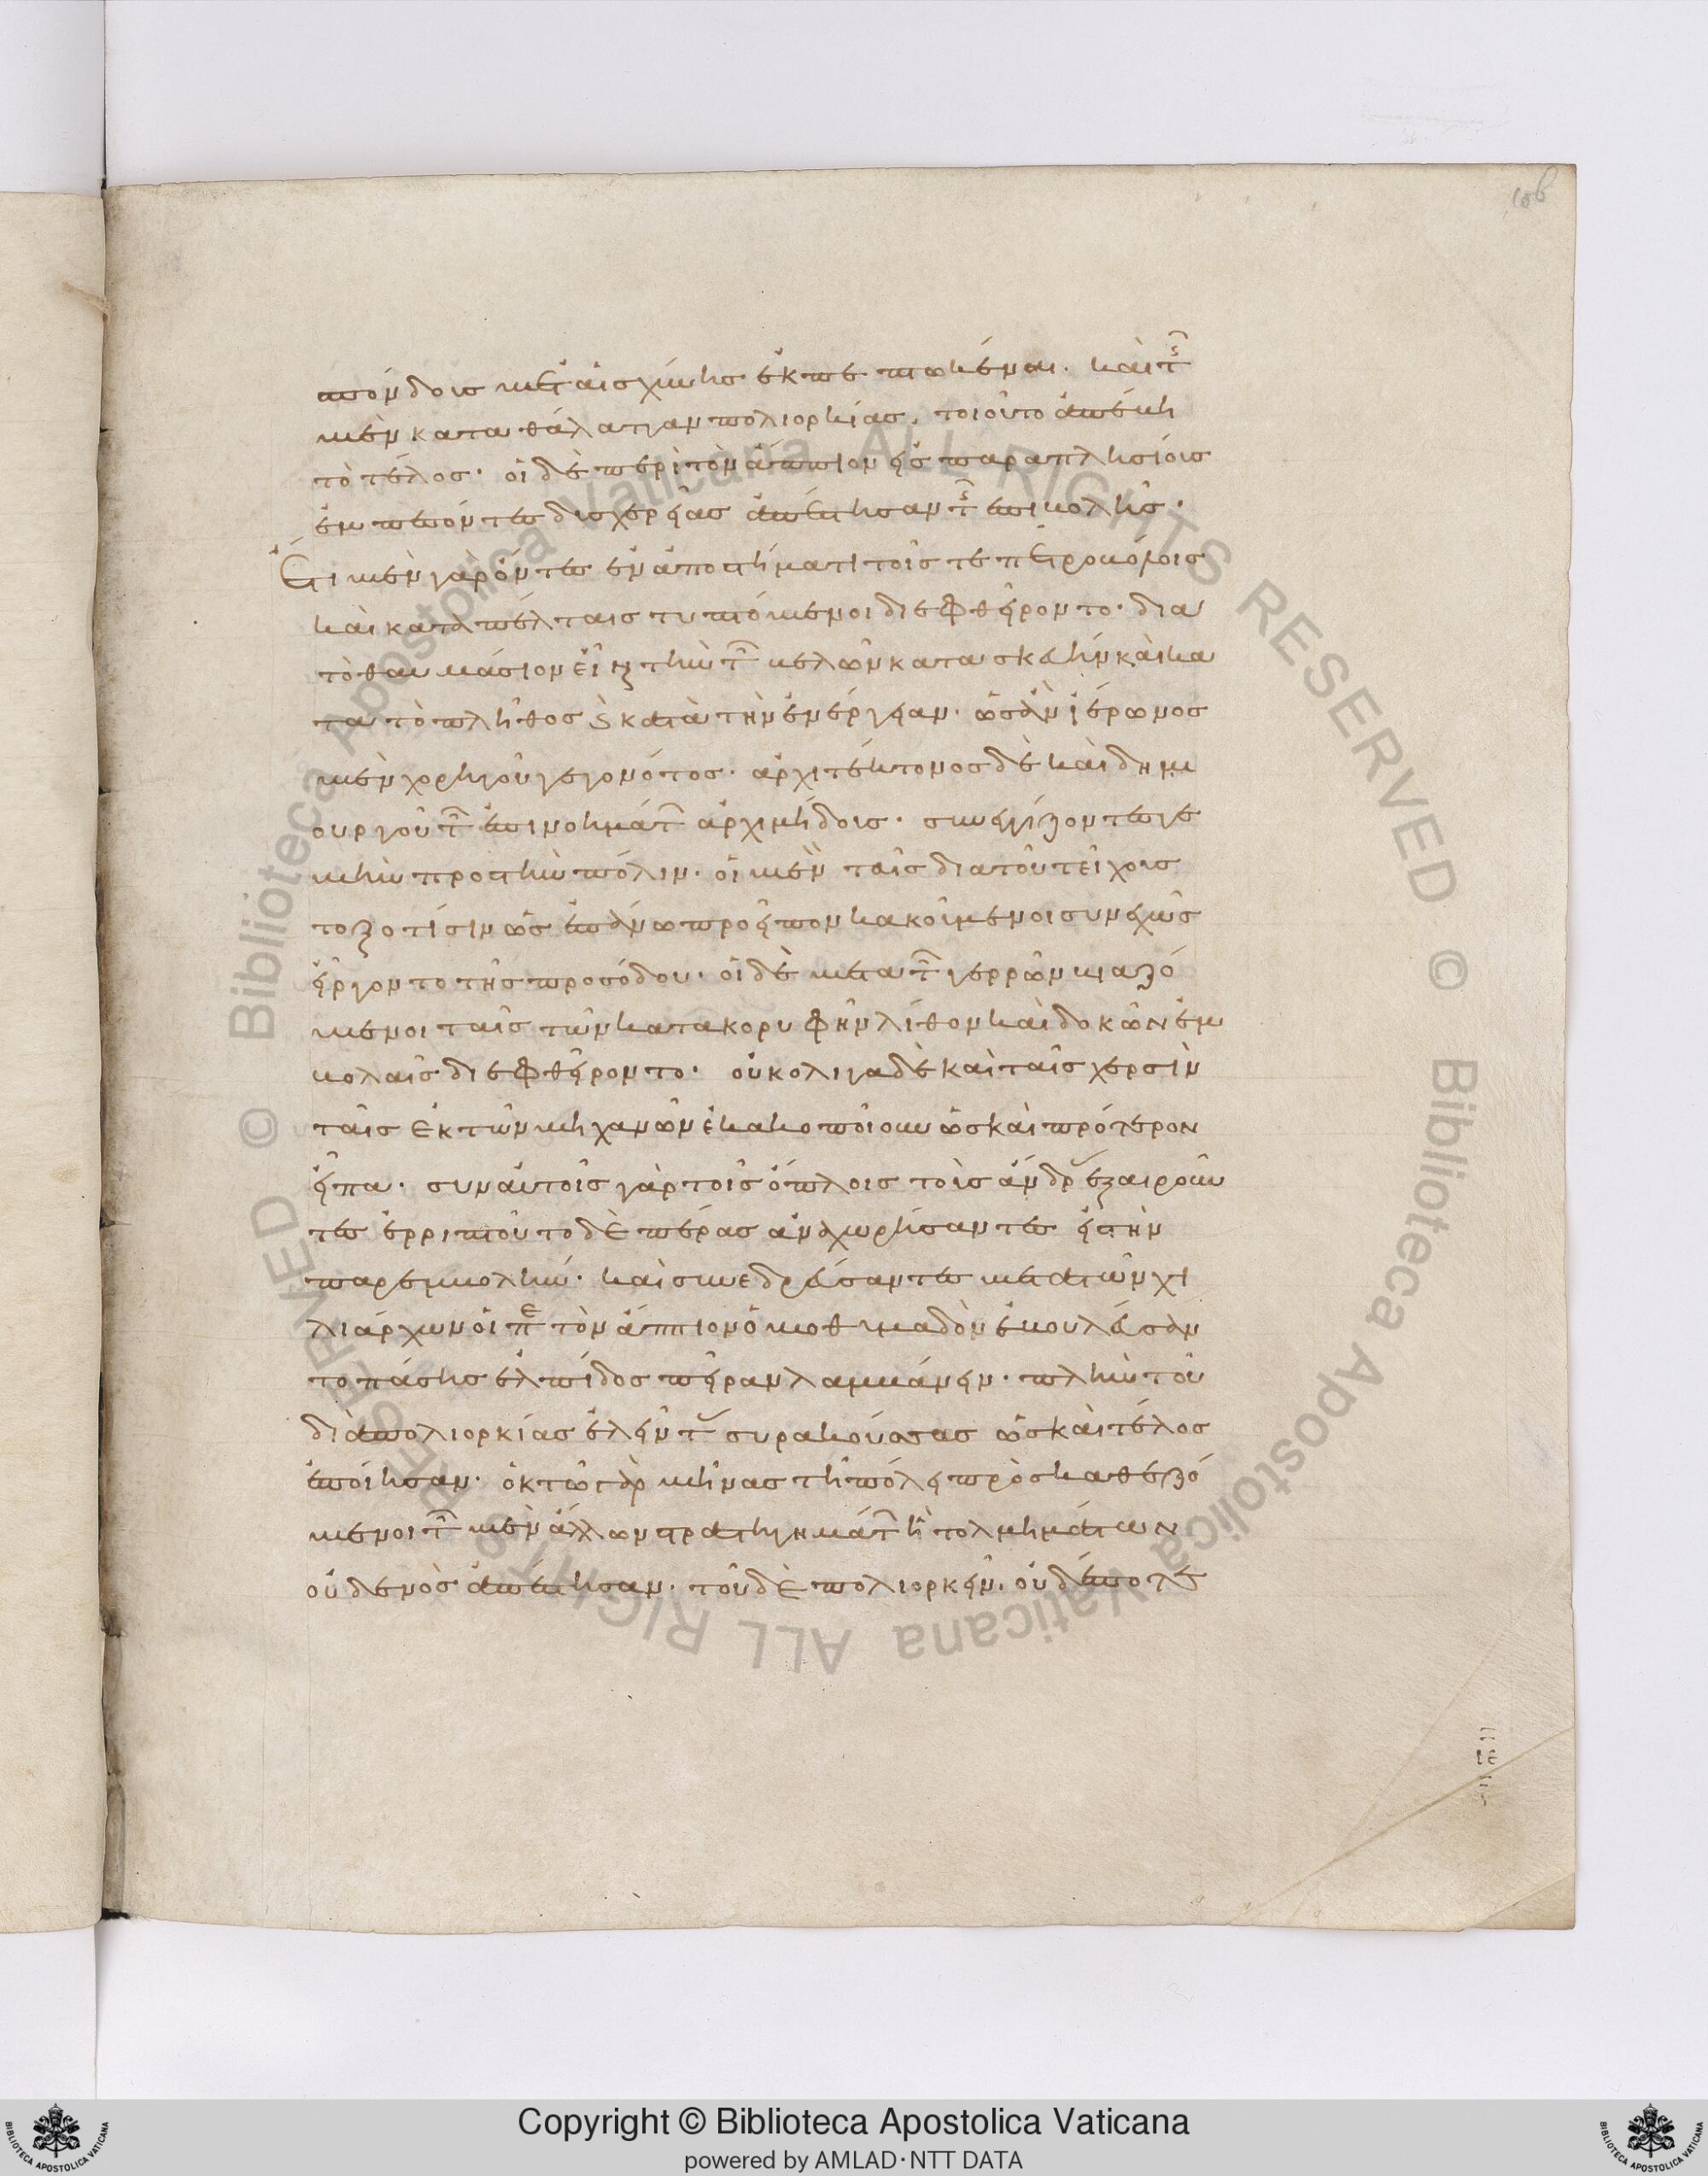 106
σπόνδους μετ αἰσχύνης ἐκπεπτωκέναι. καὶ τῆς
μὲν κατα θάλατταν πολιορκίας, τοιοῦτο ἀπέβη
τὸ τέλος· οἱ δὲ περὶ τὸν ἄππιον εἰς παραπλησίους
ἐμπεσόντες δυσχερείας ἀπέστησαν τῆς ἐπιβολῆς·
Ἔτι μὲν γὰρ ὄντες ἐν ἀποστήματι τοῖς τε πετροβόλοις
καὶ καταπέλταις τυπτόμενοι διεφθείροντο· δια
τὸ θαυμάσιον εἶναι τὴν τῶν βελῶν κατασκευὴν καὶ κα
τα τὸ πλῆθος καὶ κατὰ τὴν ἐνέργειαν· ὡς ἂν ἱέρωνος
μὲν χορηγοῦ γεγονότος· ἀρχιτέκτονος δὲ καὶ δημι
ουργοῦ τῶν ἐπινοημάτων ἀρχιμήδους· συνεγγίζοντές γε
μὴν πρὸς τὴν πόλιν· οἱ μὲν ταῖς διὰ τοῦ τείχους
τοξοτίσιν ὡς ἐπάνω προεῖπον κακούμενοι συνεχῶς
εἴργοντο τῆς προσόδου· οἱ δὲ μετα τῶν γέρρων βιαζό
μενοι ταῖς τῶν κατακορυφὴν λίθων καὶ δοκῶν ἐμ
βολαῖς διεφθείροντο· οὐκ ολιγα δὲ καὶ ταῖς χερσὶν
ταῖς ἐκ τῶν μηχανῶν ἐκακοποίουν ὡς καὶ πρότερον
εἶπα· συν αὐτοῖς γὰρ τοῖς ὅπλοις τοὺς ἄνδρας ἐξαιροῦν
τες ἐρρίπτουν το δὲ πέρας ἀναχωρήσαντες εἰς τὴν
παρεμβολὴν· καὶ συνεδρεύσαντες μετὰ τῶν χι
λιάρχων οἱ περὶ τὸν ἄππιον ὁμοθυμαδὸν ἐβουλεύσαν
το πάσης ἐλπίδος πεῖραν λαμβάνειν· πλὴν τοῦ
διὰ πολιορκίας ἑλεῖν τὰς συρακούσσας ὡς καὶ τέλος
ἐποίησαν· ὀκτὼ γὰρ μῆνας τῆ πόλει προσκαθεζό
μενοι τῶν μὲν ἄλλων στρατηγημάτων ἢ τολμημάτων
οὐδενὸς ἀπέστησαν· τοῦ δὲ πολιορκεῖν, οὐδέποτε
Copyright © Biblioteca Apostolica Vaticana
powered by AMLAD·NTT DATA